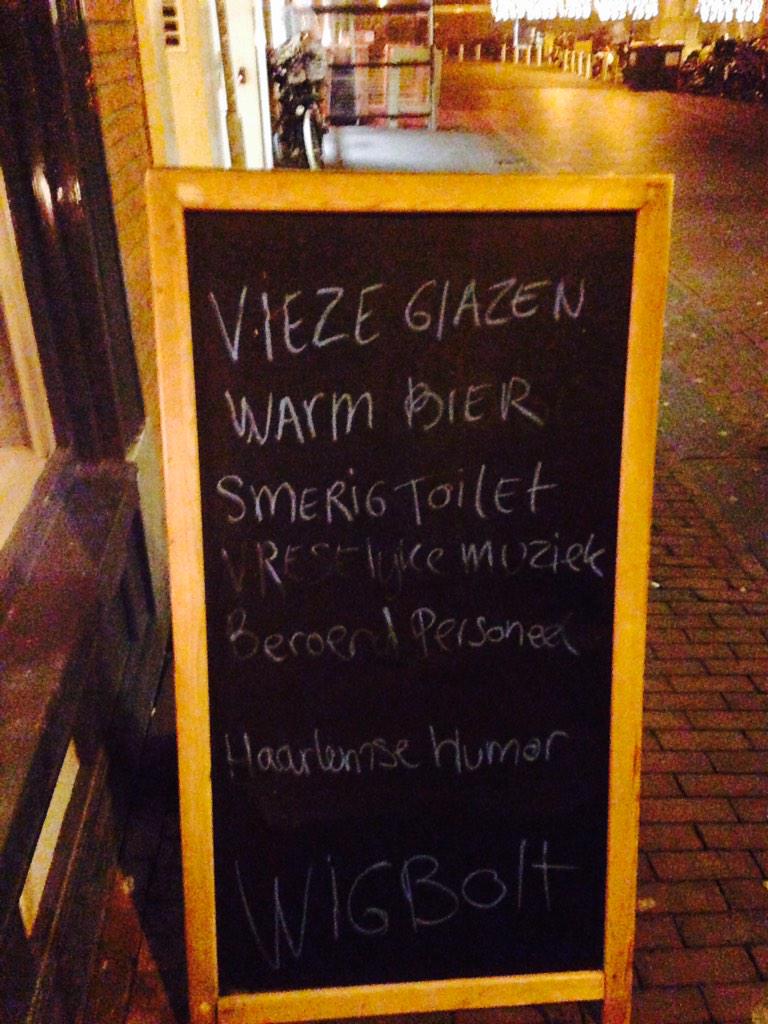 VIEZE GLAZEN
WARM BIER
SMERIG TOILET
VRESELIJKE MUZIEK
Beroerd Personeel
Haarlemse Humor
WIGBOLT